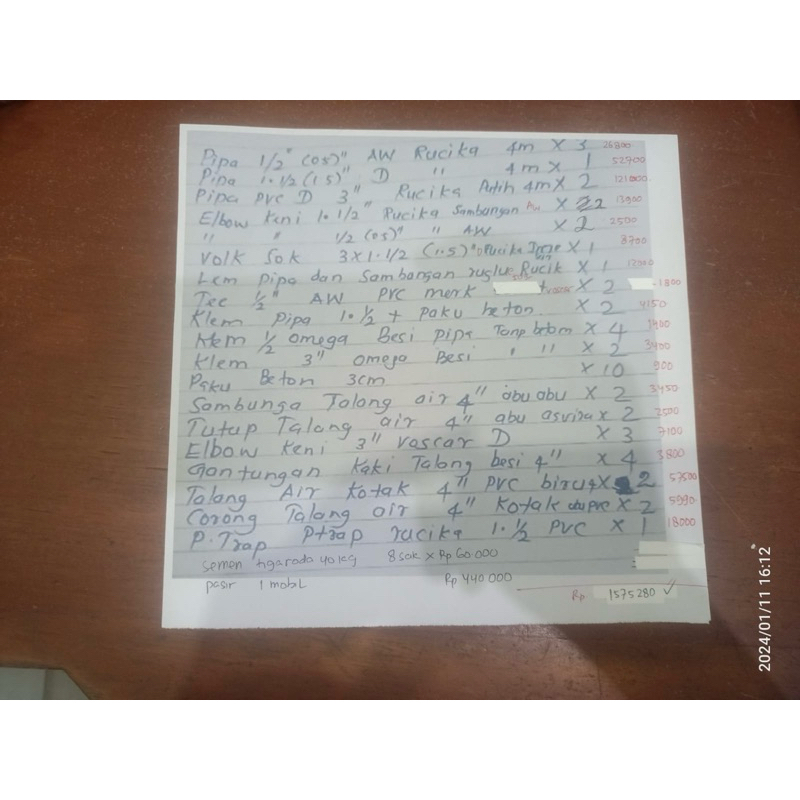 Pipa 1/2" (05)" AW Rucika 4m X 3 26800
Pipa 1.1/2 (1.5)" D " 4m X 1 52700
Pipa PVC D 3" Rucika Putih 4m X 2 121000
Elbow Keni 1.1/2" Rucika Sambangan X 2 13900
" " 1/2 (05)" " AW X 2 2500
Volk Sok 3 X 1.1/2 (1.5)" Rucika X 1 8700
Lem Pipa dan Sambangan ruglue Rucik X 1
Tee 1/2" AW PVC merk X 2 1800
Klem Pipa 1.1/2 + paku beton X 2 4150
Klem 1/2 omega Besi pipa X 4 1900
Klem 3" omega Besi " " X 2 3400
Paku Beton 3cm X 10 900
Sambunga Talang air 4" abu abu X 2 3450
Tutup Talang air 4" abu asvira X 2 2500
Elbow Keni 3" Vascar D X 3 7100
Gantungan Kaki Talang besi 4" X 4 3800
Talang Air Kotak 4" PVC X 2 57500
Corong Talang air 4" Kotak PVC X 2 5990
P.Trap Ptrap rucika 1.1/2 PVC X 1 18000
Semen tigaroda 40 kg 8 sak x Rp 60.000
pasir 1 mobL Rp 440.000
Rp 1575280 ✓
2024/01/11 16:12